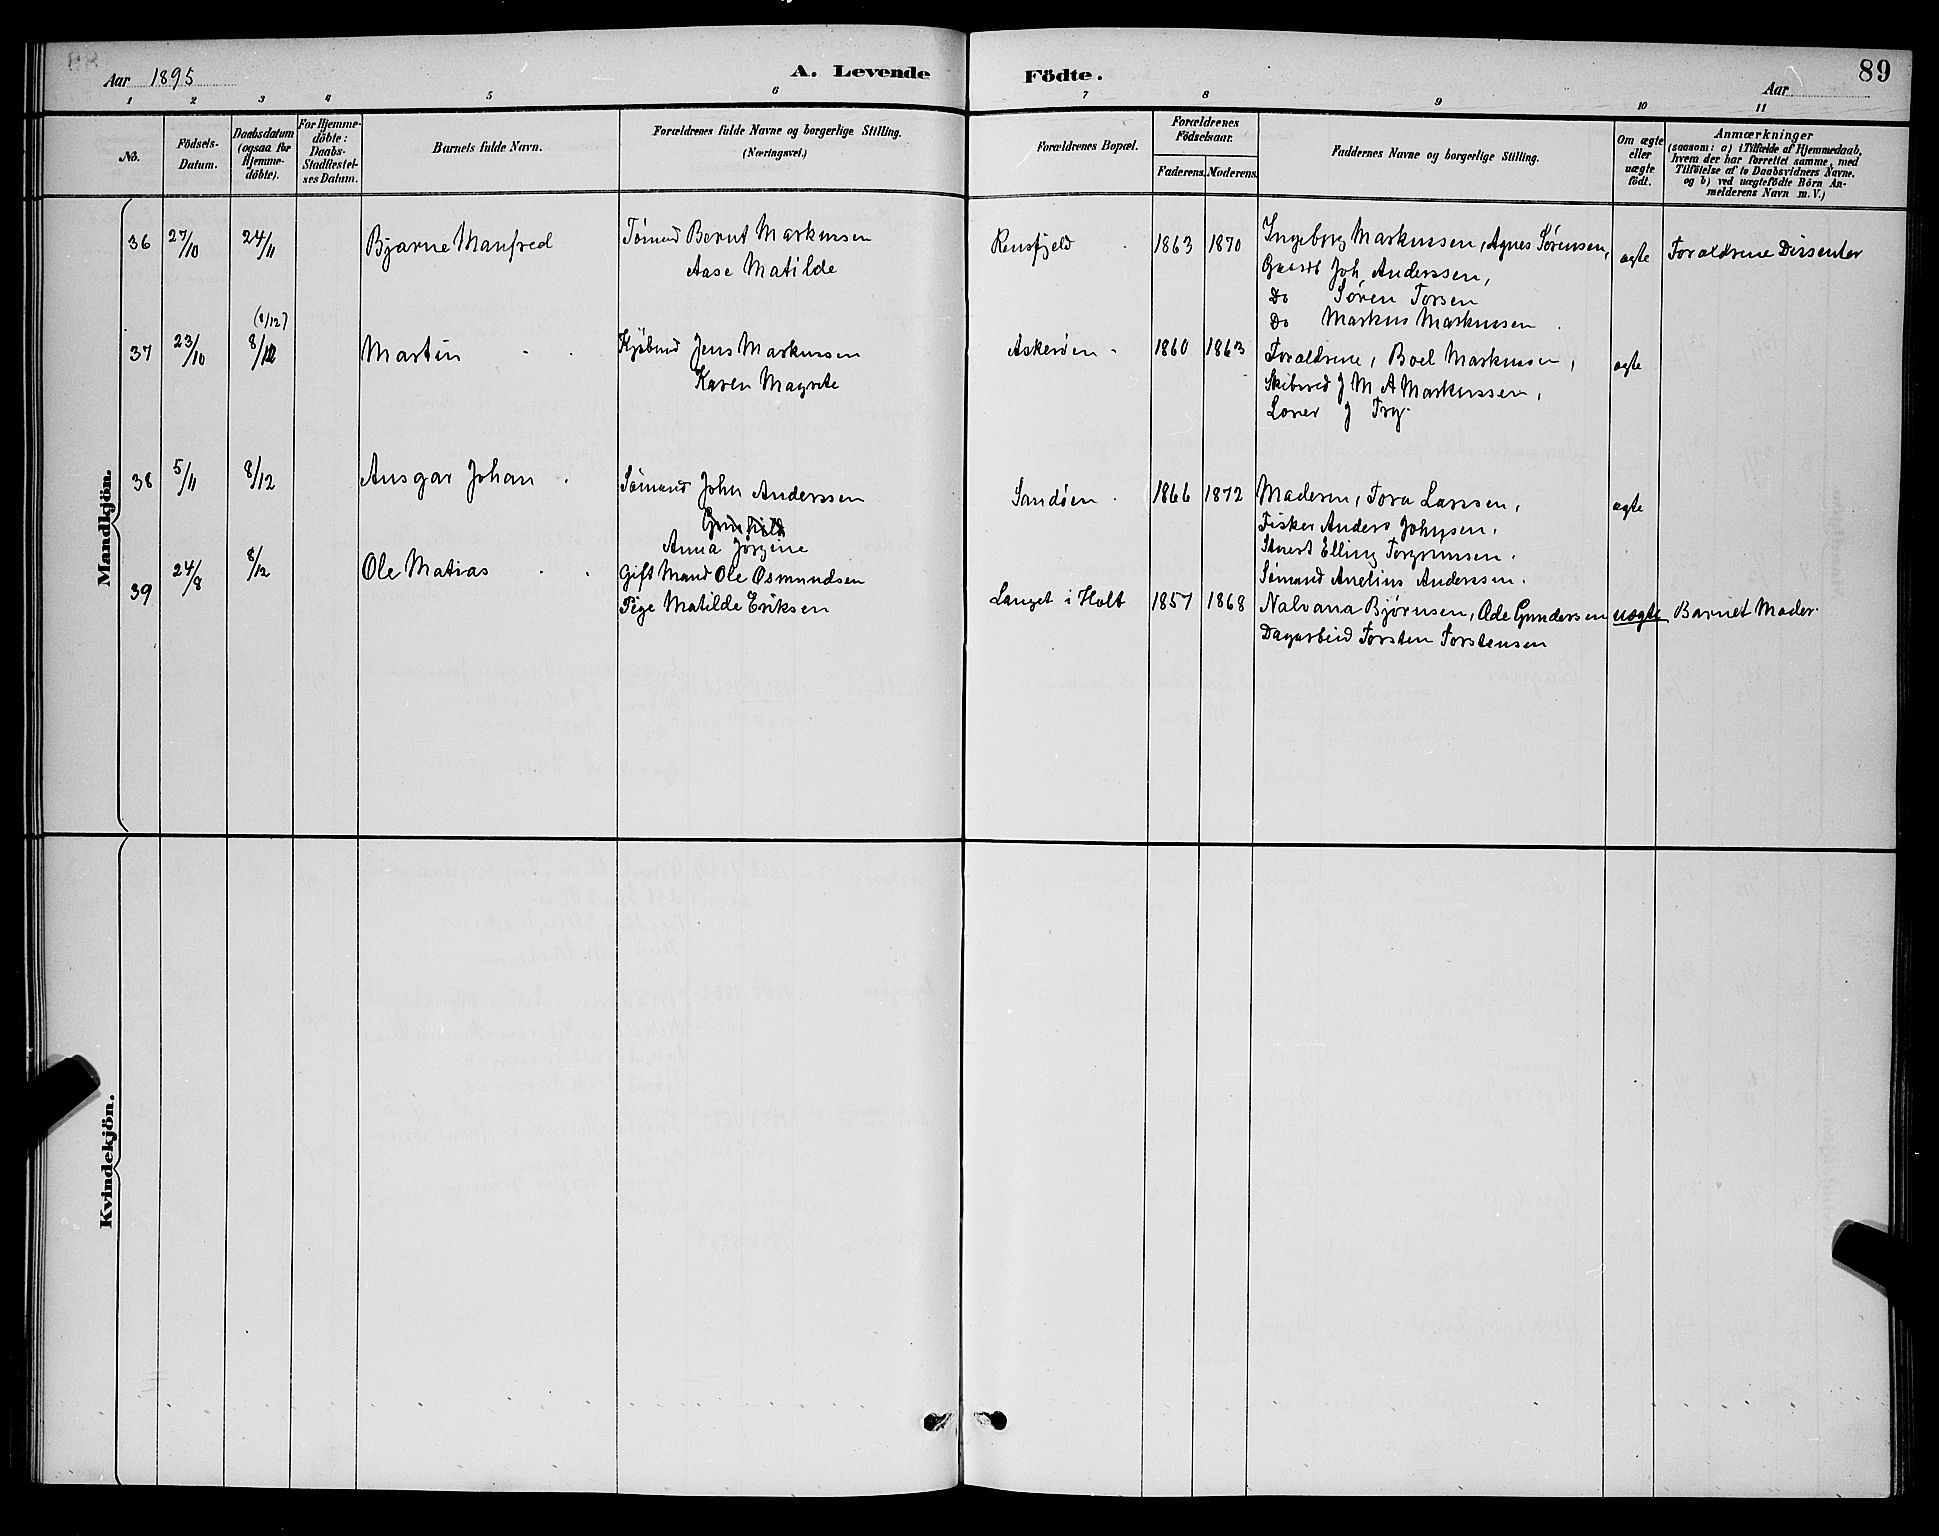 Aar 1895
A. Levende Födte.
Aar
89
1 2 3 4 5 6 7 8 9 10 11
No.
Födsels-
Datum.
Daabsdatum
(ogsaa for
Hjemme-
döbte).
For Hjemme-
döbte:
Daabs-
Stadfæstel-
ses Datum.
Barnets fulde Navn.
Forældrenes fulde Navne og borgerlige Stilling.
(Næringsvei.)
Forældrenes Bopæl.
Forældrenes
Födselsaar.
Faderens. Moderens.
Faddernes Navne og borgerlige Stilling.
Om ægte
eller
uægte
födt.
Anmærkninger
(saasom: a) i Tilfælde af Hjemmedaab,
hvem der har forrettet samme, med
Tilföielse af to Daabsvidners Navne.
og b) ved uægtefödte Börn An-
melderens Navn m. V.)
Mandkjön.
36 27/10 24/11 Bjarne Manfred Tømmd Bernt Markussen Rensfjeld 1863 1870 Ingeborg Markussen, Agnes Sørensen, ægte Forældrene Dissenter
Aase Matilde Gaardb Joh. Anderssen,
Do Søren Torsen
Do Markus Markussen
(8/12)
37 23/10 8/12 Martin Jens Markussen Askerøen 1860 1863 Forældrene, Boel Markussen, ægte
Karen Magrete Skibsred J M A Markussen,
38 5/11 8/12 Ansgar Johan Sømand John Anderssen Sandøen 1866 1872 Moderen, Tora Larssen, ægte
Gunhild Fisker Anders Johnsen,
Anna Jørgine Elling Torgrimsen.
Sømand Anelius Anderssen.
39 24/8 8/12 Ole Matias Gift Mand Ole Osmundsen Langet i Holt 1857 1868 Nalvana Bjørnsen, Ode Gundersen uægte Barnet Moder
Pige Matilde Eriksen Dagarbeid Torsten Torstensen
Kvindekjön.